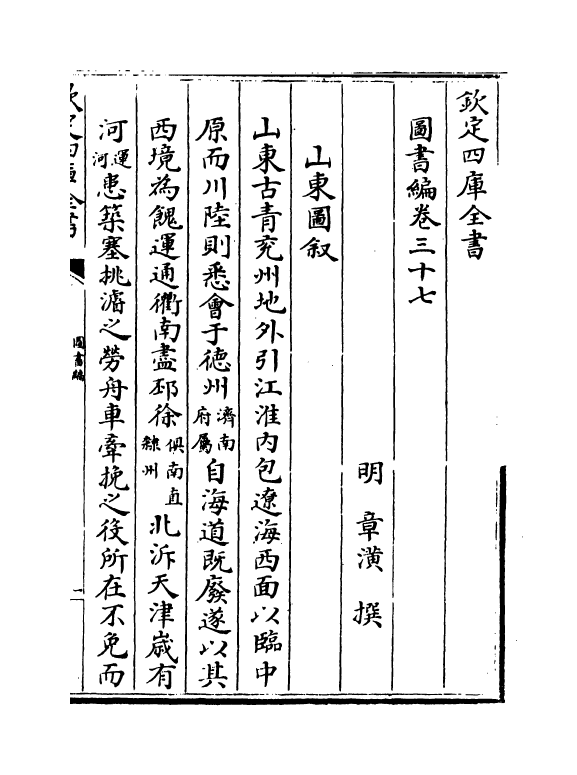 欽定四庫全書
圖書編卷三十七
明 章潢 撰
山東圖叙
山東古青兖州地外引江淮内包遼海西面以臨中
原而川陸則悉會于德州濟南府屬自海道既廢遂以其
西境為餽運通衢南盡邳徐俱南直𨽻州北泝天津嵗有
河運河患築塞挑濬之勞舟車牽挽之役所在不免而
圖書編